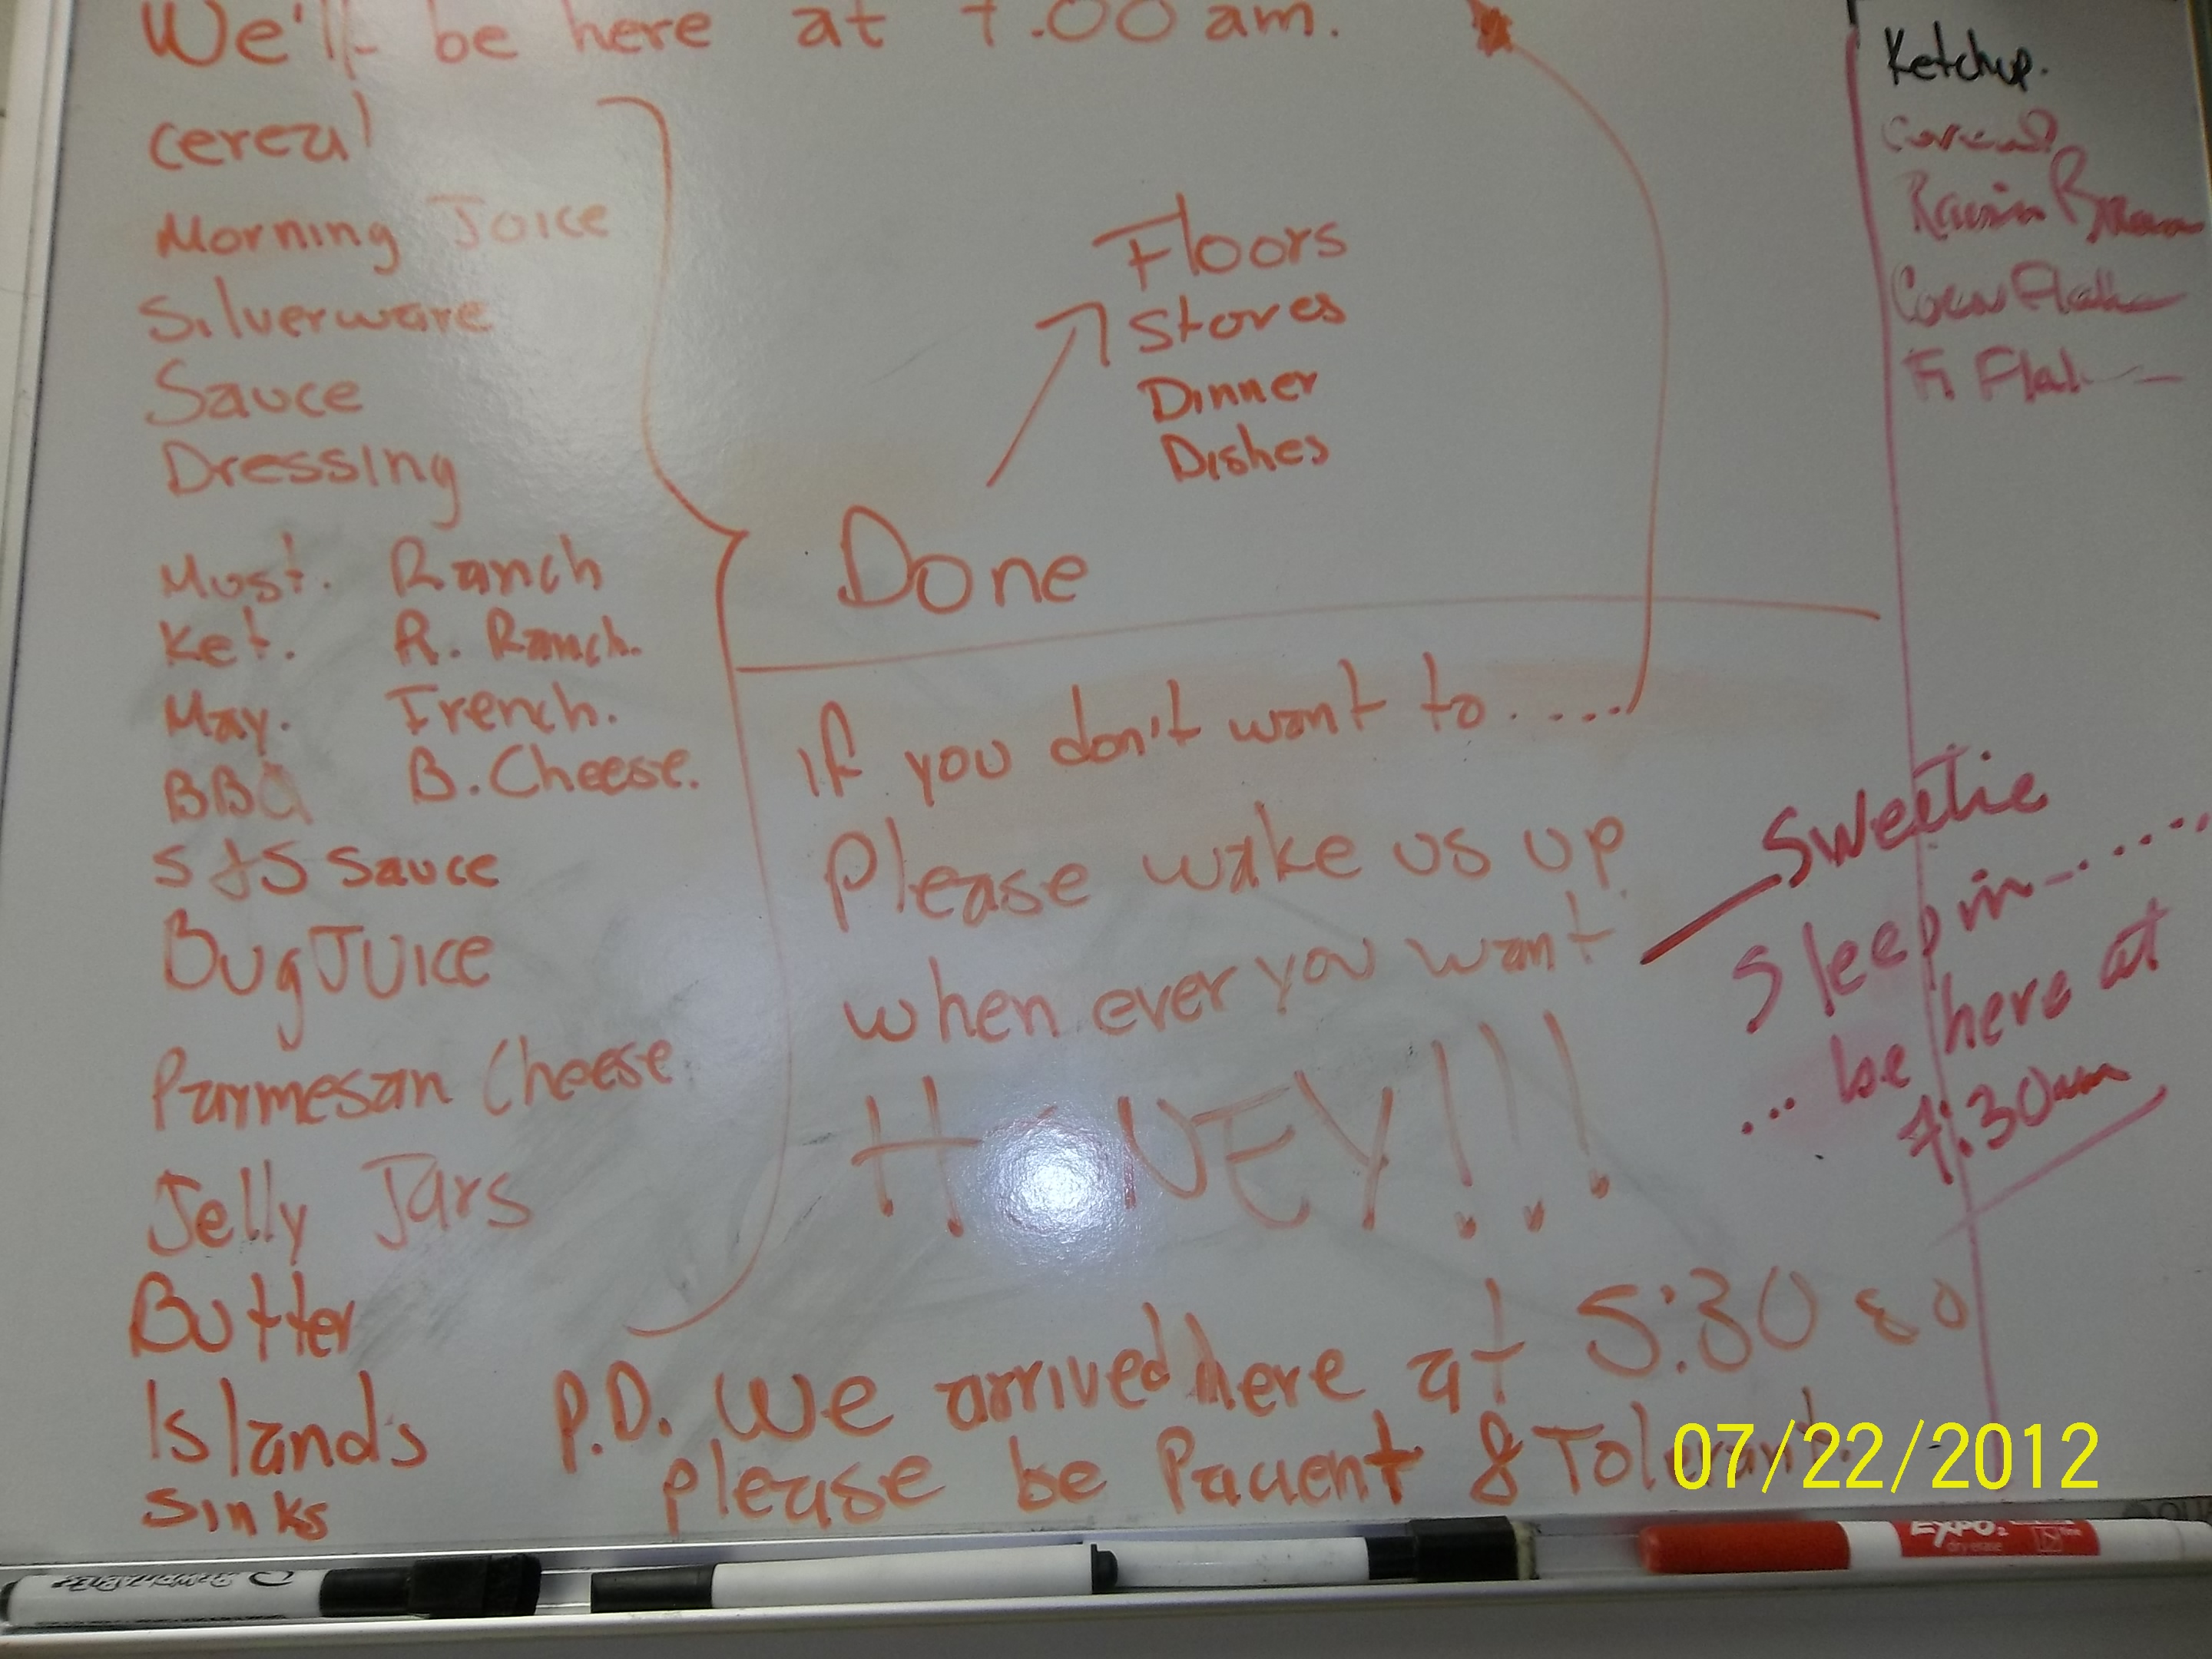 We'll be here at 7:00 am.
cereal
Morning Joice
Silverware
Sauce
Dressing
Must. Ranch
Ket. R. Ranch.
May. French.
BBQ B. Cheese.
S & S Sauce
Bug JUICE
Parmesan Cheese
Jelly Jars
Butter
Islands
Sinks
Floors
Stoves
Dinner
Dishes
Done
If you don't want to.....
Please wake us up
when ever you want
HONEY!!!
P.D. We arrived here at 5:30 so
please be Pacient & Tolerant.
Sweetie
Sleep in.......
... be here at
7:30am
Ketchup.
Cereal
Raisin Bran
Corn Flak
Flak
07/22/2012
EXPO 2
dry erase
fine